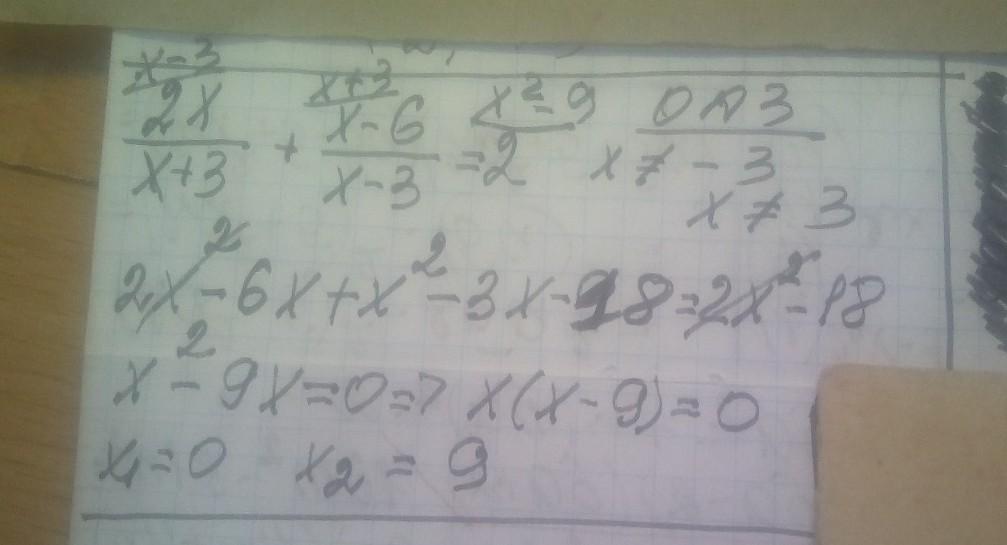 x-3 x+3 x²-9
2x/x+3 + x-6/x-3 = 2 ОДЗ
x ≠ -3
x ≠ 3
2x²-6x+x²-3x-18=2x²-18
x²-9x=0=> x(x-9)=0
x₁=0 x₂=9